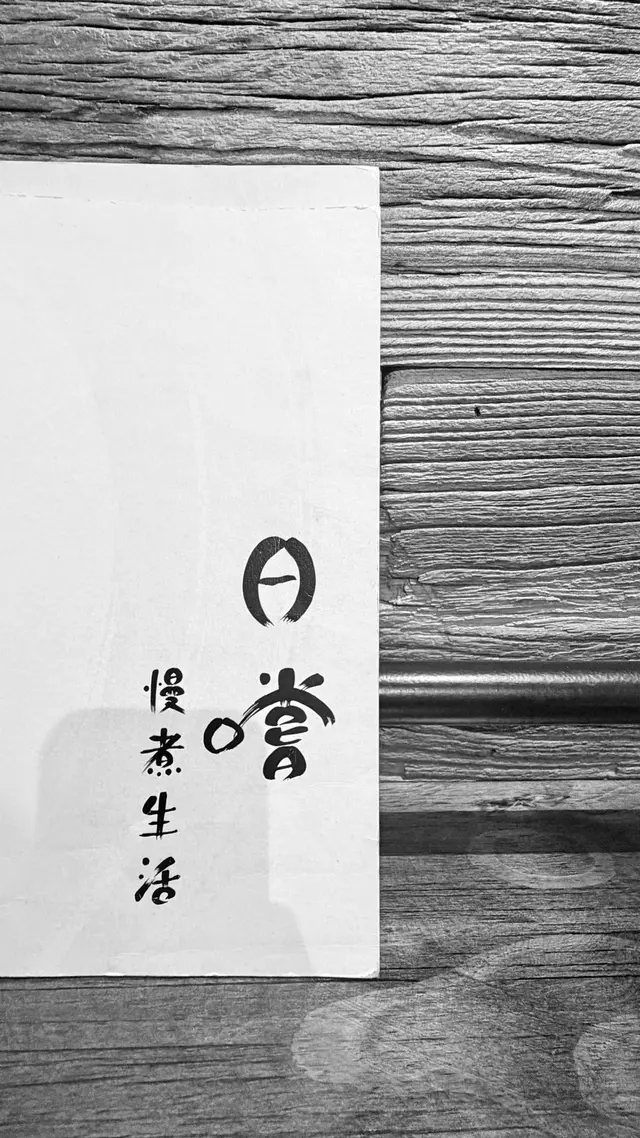 日嚐
慢煮生活